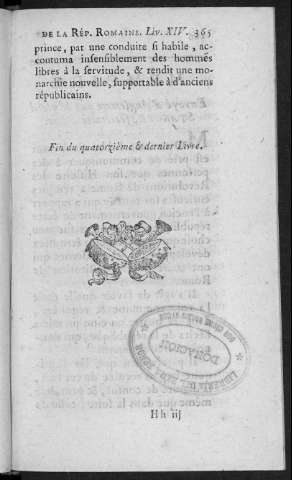 DE LA RÉP. ROMAINE. Liv. XIV. 365
prince, par une conduite si habile, ac-
coutuma insensiblement des hommes
libres à la servitude, & rendit une mo-
narchie nouvelle, supportable à d'anciens
républicains.
Fin du quatorzième & dernier Livre.
DONACION
H h iij